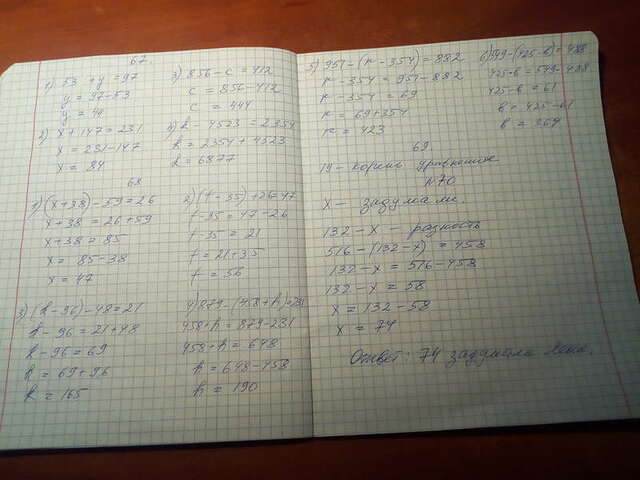 67
1) 53 + y = 97
y = 97-53
y = 44
2) x + 147 = 231
x = 231-147
x = 84
3) 856 - c = 412
c = 856-412
c = 444
4) k - 4523 = 2354
k = 2354 + 4523
k = 6877
68
1) (x+38) - 59 = 26
x+38 = 26+59
x+38 = 85
x = 85-38
x = 47
2) (t-35) + 26 = 47
t-35 = 47-26
t-35 = 21
t = 21+35
t = 56
3) (k-96) - 48 = 21
k-96 = 21+48
k-96 = 69
k = 69+96
k = 165
4) 879 - (458+h) = 231
458+h = 879-231
458+h = 648
h = 648-458
h = 190
5) 951 - (n-354) = 882
n-354 = 951-882
n-354 = 69
n = 69+354
n = 423
6) 549 - (425-b) = 488
425-b = 549-488
425-b = 61
b = 425-61
b = 364
69
19 - корень уравнения
№70
x - задумали.
132 - x - разность
516 - (132-x) = 458
132-x = 516-458
132-x = 58
x = 132-58
x = 74
Ответ: 74 задумала